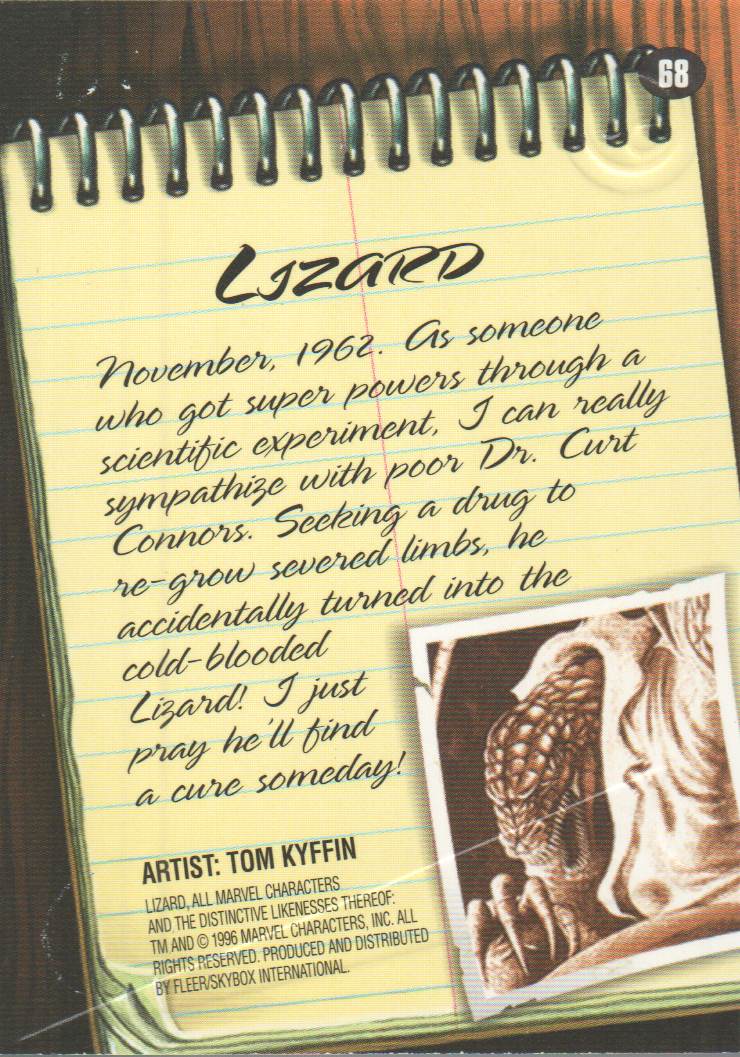 68
LIZARD
November, 1962. As someone
who got super powers through a
scientific experiment, I can really
sympathize with poor Dr. Curt
Connors. Seeking a drug to
re-grow severed limbs, he
accidentally turned into the
cold-blooded
Lizard! I just
pray he'll find
a cure someday!
ARTIST: TOM KYFFIN
LIZARD, ALL MARVEL CHARACTERS
AND THE DISTINCTIVE LIKENESSES THEREOF:
TM AND © 1996 MARVEL CHARACTERS, INC. ALL
RIGHTS RESERVED. PRODUCED AND DISTRIBUTED
BY FLEER/SKYBOX INTERNATIONAL.